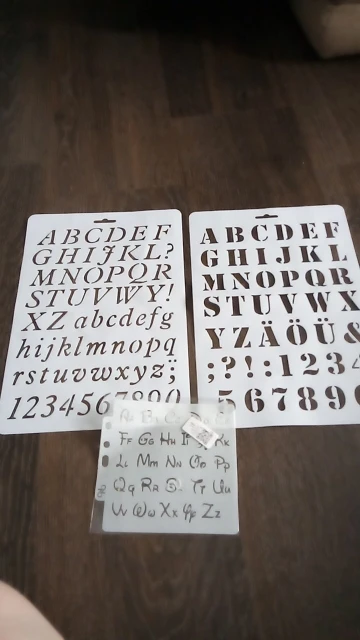 ABCDEF
GHIJKL?
MNOPQR
STUVWY!
XZ abcdefg
hijklmnopq
rstuvwxyz;
1234567890
ABCDEF
GHIJKL
MNOPQR
STUVWX
YZÄÖÜ&
;?!:1234
567890
Ff Gg Hh Ii Kk
Ll Mm Nn Oo Pp
Qq Rr Tt Uu
Vv Ww Xx Yy Zz